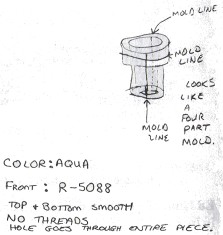 MOLD LINE
MOLD
LINE
LOOKS
LIKE
A
FOUR
PART
MOLD.
MOLD
LINE
COLOR: AQUA
FRONT: R-5088
TOP & BOTTOM SMOOTH
NO THREADS
HOLE GOES THROUGH ENTIRE PIECE.